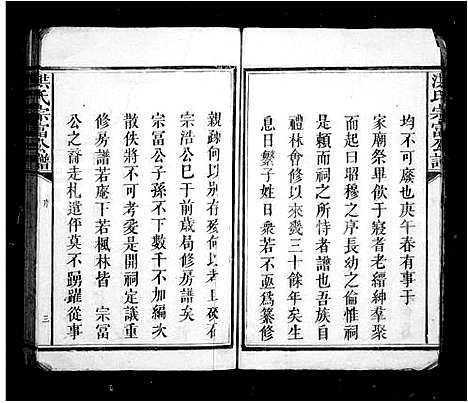 洪氏宗富公譜
均不可廢也庚午春有事于
家廟祭畢飲于寢者老縉紳羣聚
起而曰昭穆之序長幼之倫惟祠
是頼而祠之所恃者譜也吾族自
禮林會修以來㡬三十餘年矣生
息日繁子姓日衆若不亟爲纂修
親疎何以別存歿何以稽且夫
宗浩公巳于前歲局修房譜矣
宗富公子孫不下數千不加編次
散佚將不可考爰是開祠定議重
修房譜若庵下若楓林皆 宗富
公之裔走札遺伻莫不踴躍從事
洪氏宗富公譜
序
三